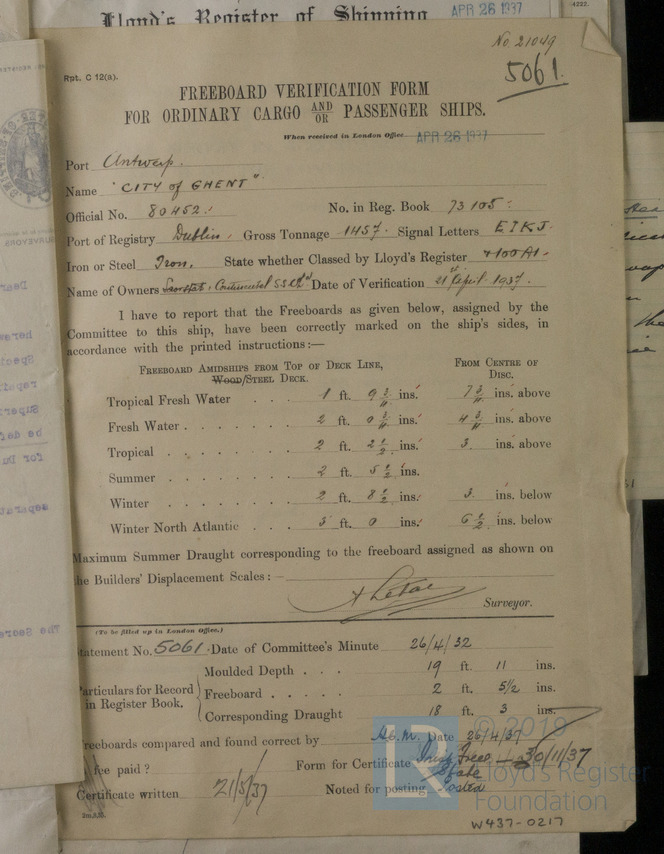 Lloyd's Register of Shipping
APR 26 1937
No. 21049
5061.
Rpt. C 12(a).
FREEBOARD VERIFICATION FORM
FOR ORDINARY CARGO AND/OR PASSENGER SHIPS.
When received in London Office APR 26 1937
Port Antwerp.
Name "CITY of GHENT"
Official No. 80452. No. in Reg. Book 73105
Port of Registry Dublin. Gross Tonnage 1457. Signal Letters EIKJ.
Iron or Steel Iron. State whether Classed by Lloyd's Register +100A1.
Name of Owners Continental S.S. Date of Verification 21st April 1937.
I have to report that the Freeboards as given below, assigned by the
Committee to this ship, have been correctly marked on the ship's sides, in
accordance with the printed instructions:—
FREEBOARD AMIDSHIPS FROM TOP OF DECK LINE, FROM CENTRE OF
Wood/STEEL DECK. DISC.
Tropical Fresh Water . . . 1 ft. 9 ins. 7 ins. above
Fresh Water . . . . . . . 2 ft. 0 ins. 4 ins. above
Tropical . . . . . . . . 2 ft. 2 1/2 ins. 3 ins. above
Summer . . . . . . . . 2 ft. 5 1/2 ins.
Winter . . . . . . . . 2 ft. 8 1/2 ins. 3 ins. below
Winter North Atlantic . . . 3 ft. 0 ins. 6 1/2 ins. below
Maximum Summer Draught corresponding to the freeboard assigned as shown on
the Builders' Displacement Scales:—
Surveyor.
(To be filled up in London Office.)
Statement No. 5061. Date of Committee's Minute 26/4/32
Particulars for Record in Register Book.
Moulded Depth . . . 19 ft. 11 ins.
Freeboard . . . . . 2 ft. 5 1/2 ins.
Corresponding Draught 18 ft. 3 ins.
Freeboards compared and found correct by A.G.M. Date 26/4/37
fee paid? Form for Certificate 30/11/37
Certificate written 21/5/37 Noted for posting Posted
© 2019
Lloyd's Register
Foundation
W437-0217